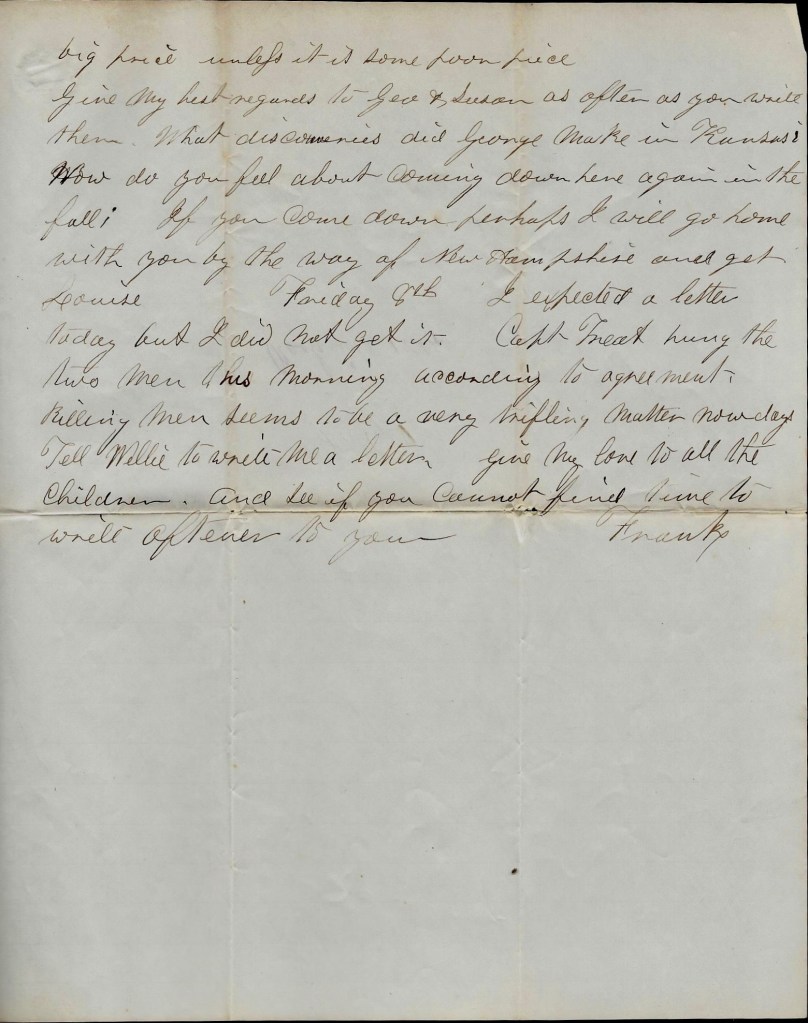 big price unless it is some poor piece
Give my best regards to Geo & Susan as often as you write
them. What discoveries did George make in Kansas?
How do you feel about coming down here again in the
fall? If you come down perhaps I will go home
with you by the way of New Hampshire and get
Louise Friday 8th I expected a letter
today but I did not get it. Capt Treat hung the
two men this morning according to agreement.
Killing men seems to be a very trifling matter now days
Tell Willie to write me a letter give my love to all the
children. And see if you cannot find time to
write oftener to your Frank